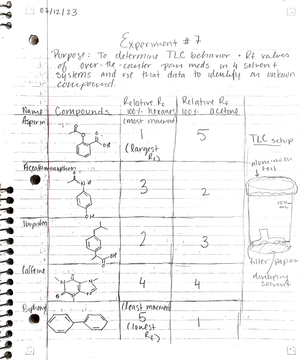 07/12/23
Experiment #7
Purpose: To determine TLC behavior + Rf values
of over-the-counter pain meds in 4 solvent
systems and use that data to identify an unkown
compound.
Name Compounds Relative Rf 100% hexane Relative Rf 100% acetone
Aspirin (most macument) 1 5
(largest Rf)
TLC setup
aluminum foil
Acetaminophen 3 2
150 mL
Ibuprofen 2 3
filter paper
developing solvent
Caffeine 4 4
Biphenyl (least macument) 5 1
(lowest Rf)